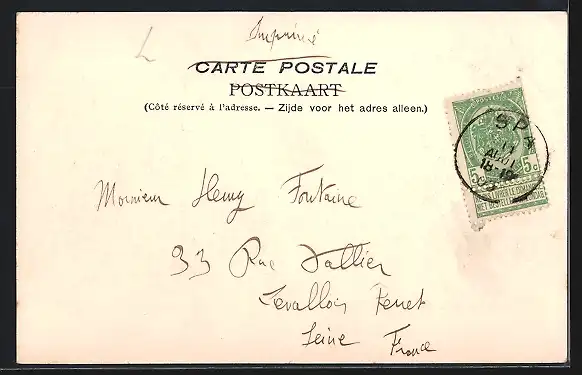 Imprimé
CARTE POSTALE
POSTKAART
(Côté réservé à l'adresse. — Zijde voor het adres alleen.)
SPA
11
AOUT
18-19
5c 5c
NE PAS LIVRER LE DIMANCHE
NIET BESTELLEN OP ZONDAG
Monsieur Henry Fontaine
33 Rue Vallier
Levallois Perret
Seine
France